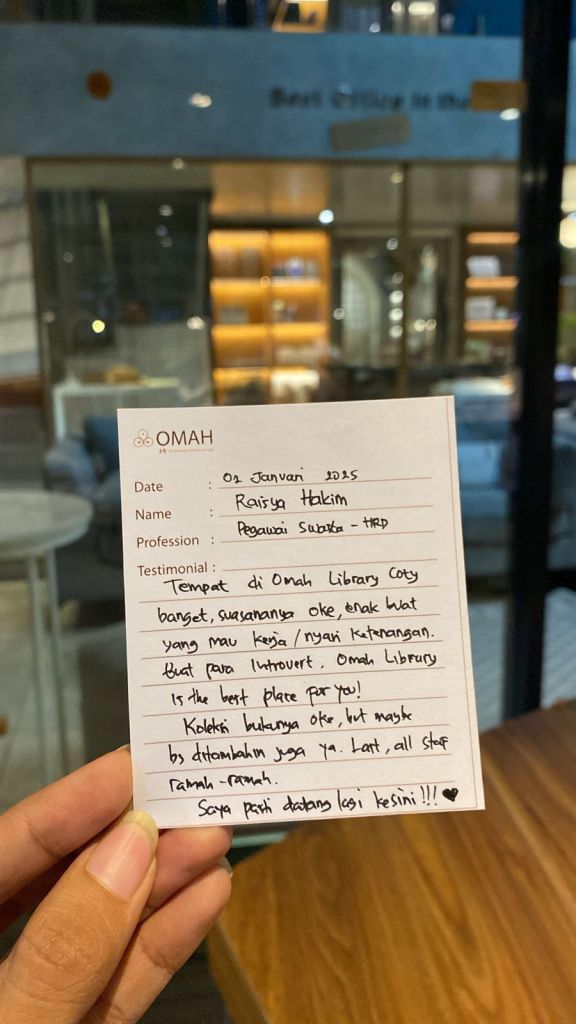 Best Office in the
OMAH
Date : 02 Januari 2025
Name : Raisya Hakim
Profession : Pegawai Swasta - HRD
Testimonial :
Tempat di Omah Library Cozy
banget, suasananya oke, enak buat
yang mau kerja/nyari ketenangan.
Buat para Introvert. Omah Library
is the best place for you!
Koleksi bukunya oke, but maybe
bs ditambahin juga ya. Last, all staf
ramah-ramah.
Saya pasti datang lagi kesini!!! ♥